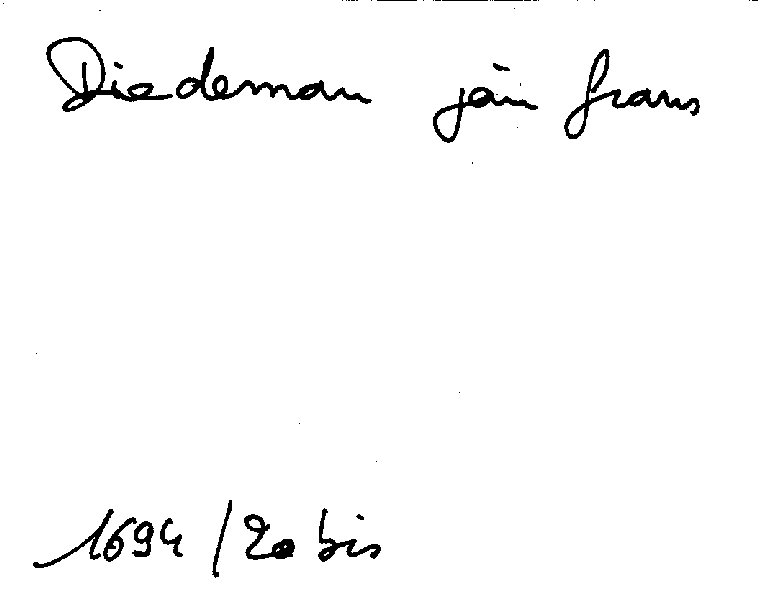 Diedeman jan frans
1694 / 20 bis